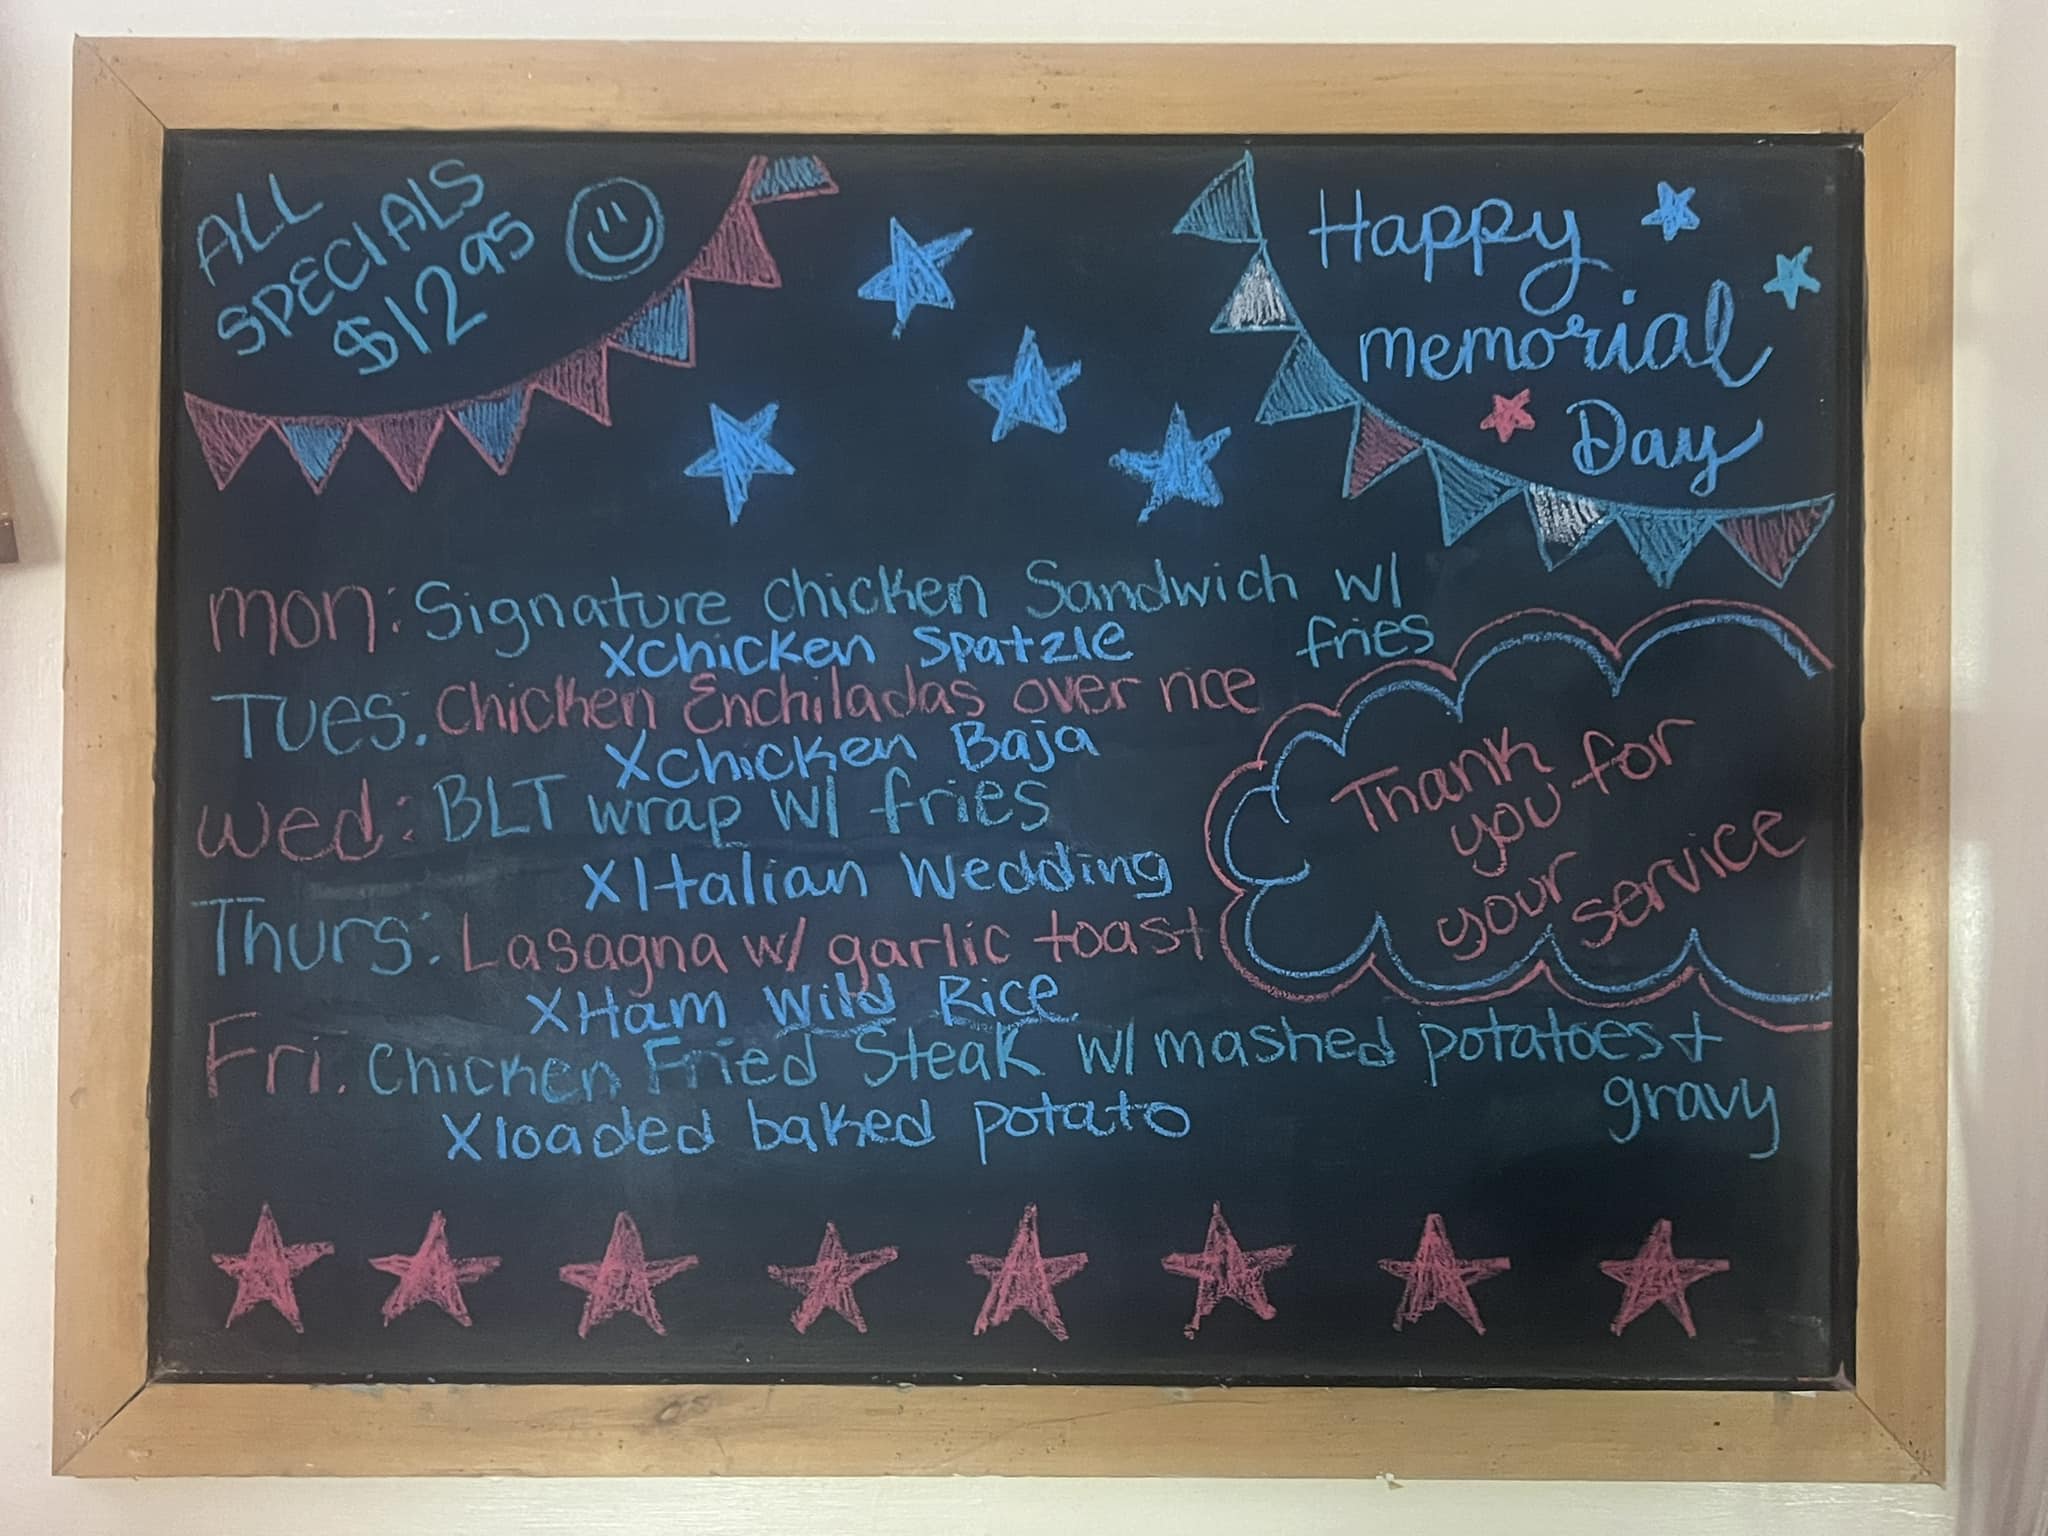 ALL
SPECIALS
$12.95
Happy
memorial
Day
mon: Signature chicken Sandwich w/
fries
X chicken Spatzle
Tues. Chicken Enchiladas over rice
X chicken Baja
wed: BLT wrap w/ fries
X Italian Wedding
Thurs: Lasagna w/ garlic toast
X Ham Wild Rice
Fri. Chicken Fried Steak w/ mashed potatoes +
gravy
X loaded baked potato
Thank
you for
your
service